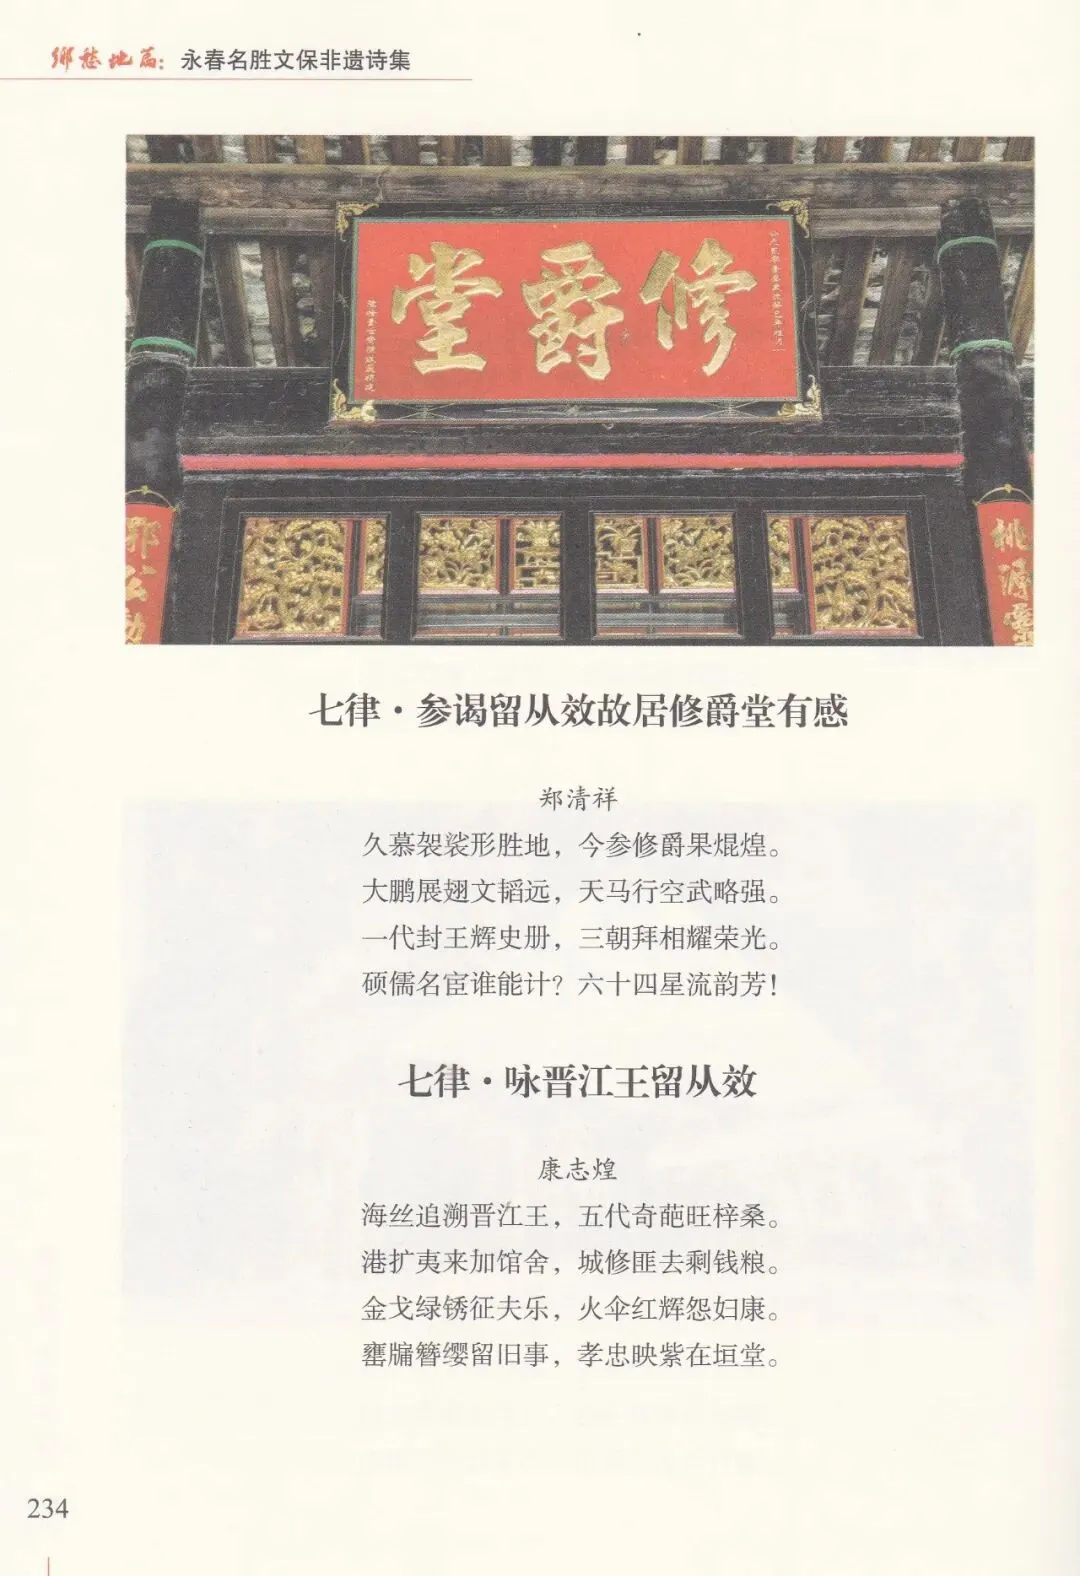 鄉愁地篇：永春名胜文保非遗诗集
修爵堂
鄂公
桃源
七律·参谒留从效故居修爵堂有感
郑清祥
久慕袈裟形胜地，今参修爵果焜煌。
大鹏展翅文韬远，天马行空武略强。
一代封王辉史册，三朝拜相耀荣光。
硕儒名宦谁能计？六十四星流韵芳！
七律·咏晋江王留从效
康志煌
海丝追溯晋江王，五代奇葩旺梓桑。
港扩夷来加馆舍，城修匪去剩钱粮。
金戈绿锈征夫乐，火伞红辉怨妇康。
罋牖簪缨留旧事，孝忠映紫在垣堂。
234